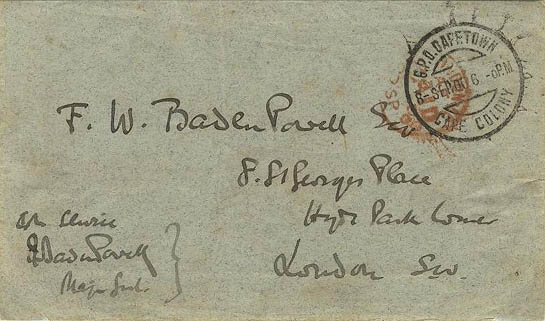 G.P.O. CAPETOWN
6 - 0 PM
CAPE COLONY
F. W. Baden Powell
8. St Georges Place
Hyde Park Corner
London SW.
On Service
BadenPowell